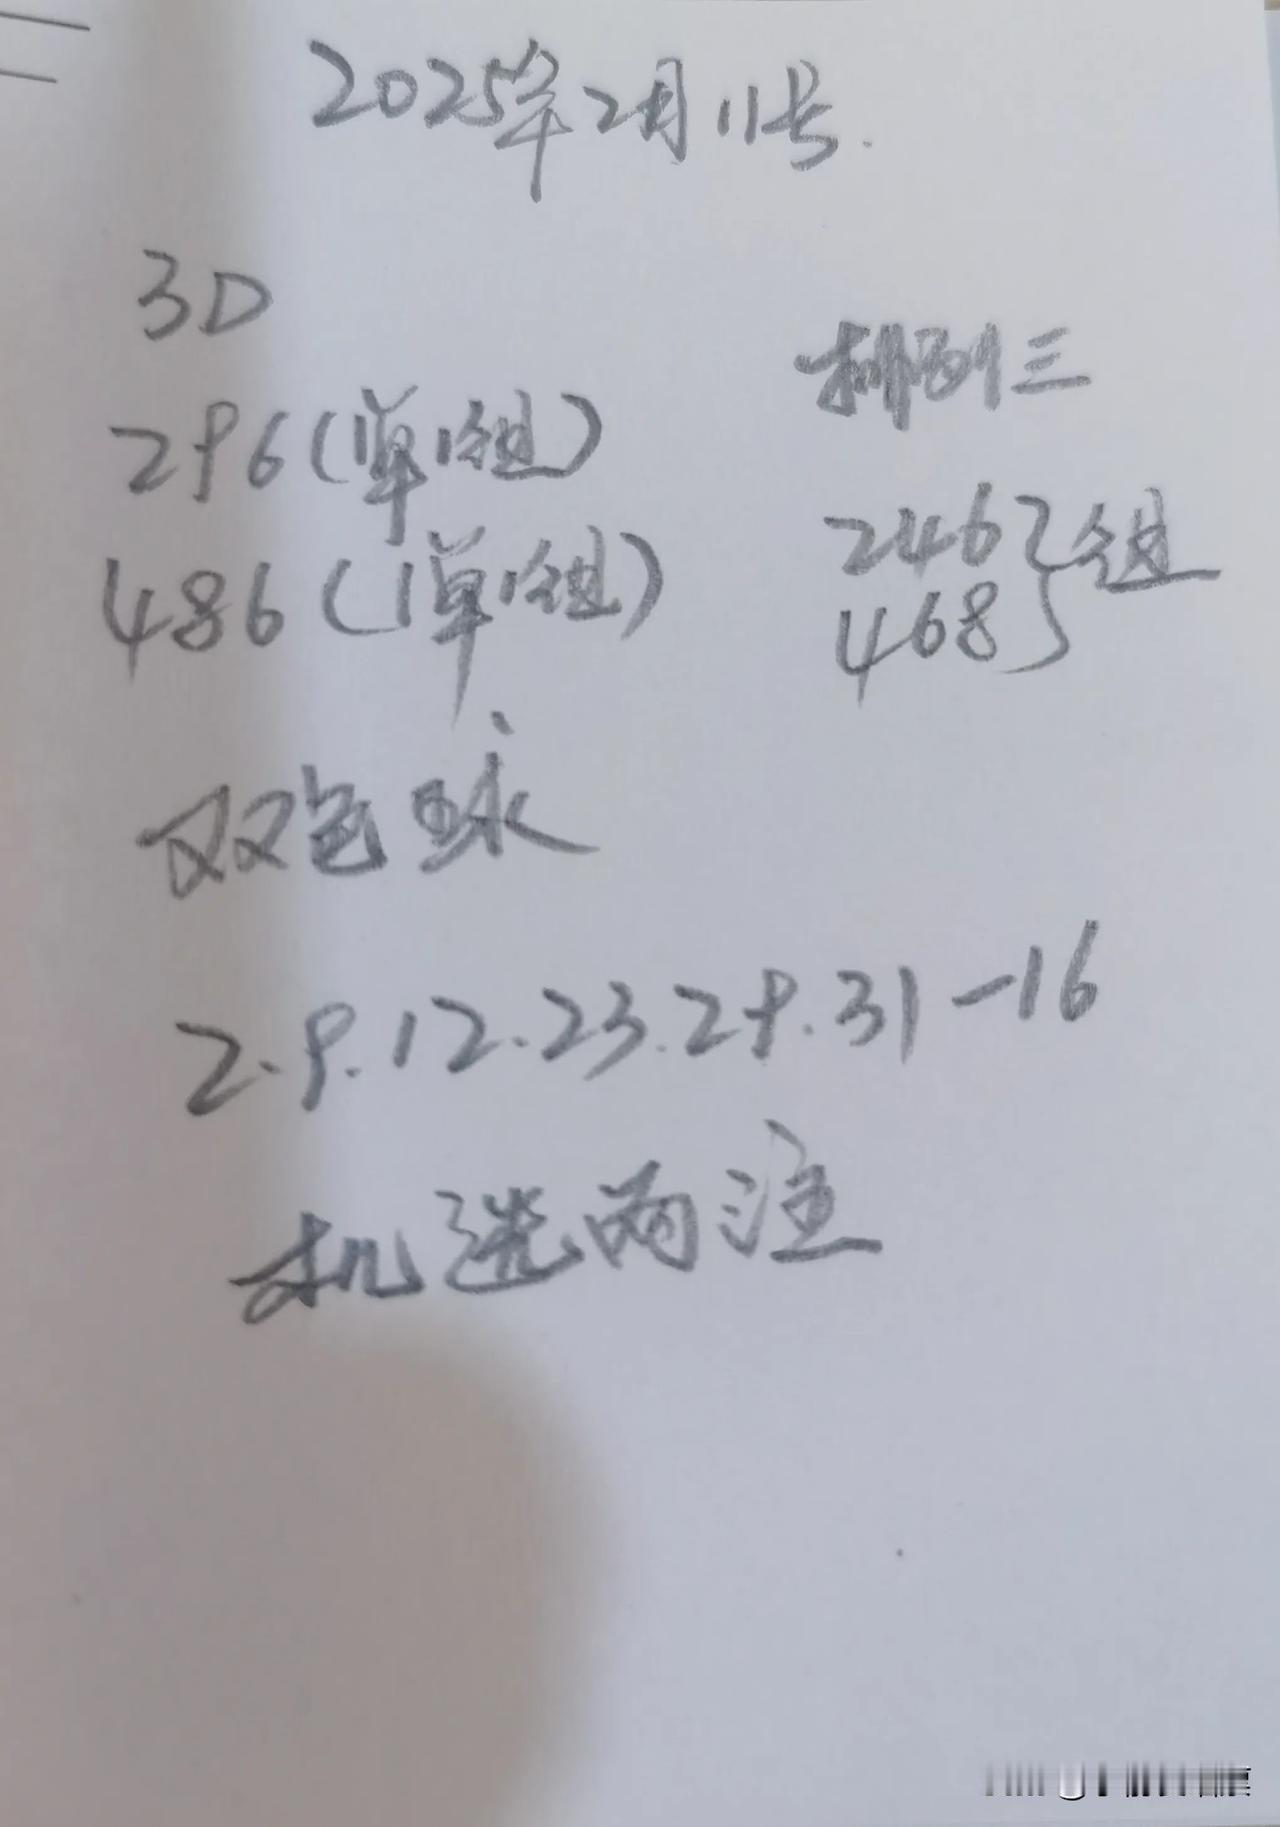 2025年2月11号.
3D
296(1单1组)
486(1单1组)
排列三
246
468 } 组
双色球
2.9.12.23.29.31-16
机选两注